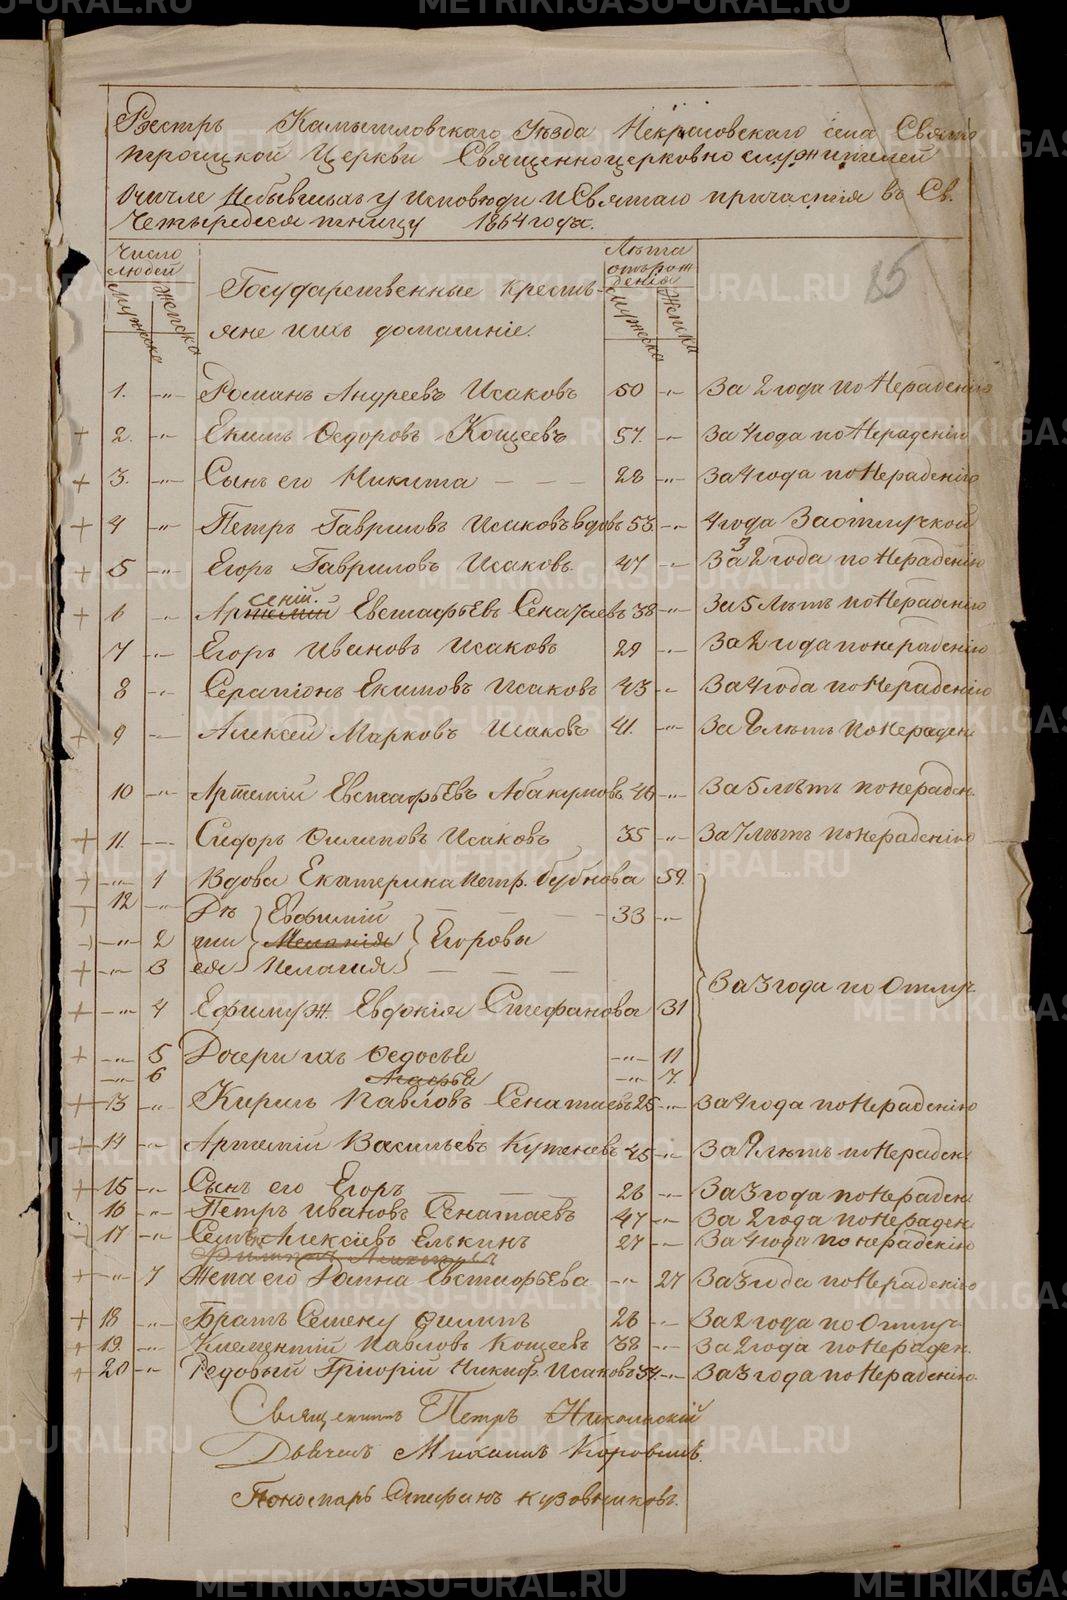 Реестръ Камышловскаго Уѣзда Некрасовскаго села Свято
троицкой Церкви Священноцерковнослужителей
о числе Небывшихъ у исповѣди и Святаго причастія въ Св.
Четыредесятницу 1864 года.
Число людей Лѣта отъ рождѣнія
Мужеска Женска Государственные крестьяне и ихъ домашніе. Мужеска Женска
85
1. -"- Романъ Андреевъ Исаковъ 50 -"- За 2 года по Нерадѣнію
+ 2. -"- Екимъ Ѳедоровъ Кощеевъ 57. -"- За 4 года по Нерадѣнію
+ 3. -"- Сынъ его Никита - - - 28 -"- За 4 года по Нерадѣнію
+ 4 -"- Петръ Гавриловъ Исаковъ вдовъ 53 -"- 4 года За отлучкой
+ 5 -"- Егоръ Гавриловъ Исаковъ. 47 -"- За 2 3 года по Нерадѣнію
+ 6 -"- Артемій сеній. Евстафьевъ Сенатаевъ 38 -"- За 5 лѣтъ по Нерадѣнію
7 -"- Егоръ Ивановъ Исаковъ 29 -"- За 2 года по нерадѣнію
8 -"- Серапіонъ Екимовъ Исаковъ 43 -"- За 4 года по Нерадѣнію
+ 9 -"- Алексѣй Марковъ Исаковъ 41. -"- За лѣтъ по Нерадѣн
10 -"- Артемій Евстафьевъ Абакумовъ 46 -"- За 5 лѣтъ по нерадѣн.
+ 11. -"- Сидоръ Филиповъ Исаковъ 35 -"- За 7 лѣтъ по Нерадѣнію
+ -"- 1 Вдова Екатерина Петр. Бубнова 59.
12 -"- Дѣ Евфимій - - - 33 -"-
-"- 2 ти Меланія Егоровы
+ -"- 3 ея Пелагия - - -
За 3 года по Отлуч
+ -"- 4 Ефиму ж. Евдокія Стефанова 31
+ -"- 5 Дочери ихъ Ѳедосья -"- 11
-"- 6 Агафья -"- 7.
+ 13 -"- Кирилъ Павловъ Сенатаевъ 25 -"- За 4 года по Нерадѣнію
+ 14 -"- Артемій Васильевъ 45 -"- За лѣтъ по Нерадѣн
+ 15 -"- Сынъ его Егоръ - - 26 -"- За 3 года по Нерадѣн
16 -"- Петръ Ивановъ Сенатаевъ 47 -"- За 2 года по Нерадѣн
17 -"- Семенъ Алексіевъ Елькинъ 27 -"- За 4 года по нерадѣнію
+ -"- 7 Жена его Евстафьева -"- 27 За 3 года по Нерадѣнію
+ 18 -"- Братъ Семену Филипъ 26 -"- За 2 года по Отлуч
+ 19. -"- Климентій Павловъ Кощеевъ 38 -"- За 2 года по Нерадѣн.
+ 20 -"- Рядовый Григорій Никиф. Исаковъ 34 -"- За 3 года по Нерадѣнію
Священникъ Петръ Никольскій
Дьячекъ Михаилъ Коровинъ.
Пономарь Стефанъ Кузовниковъ.
METRIKI.GASO-URAL.RU